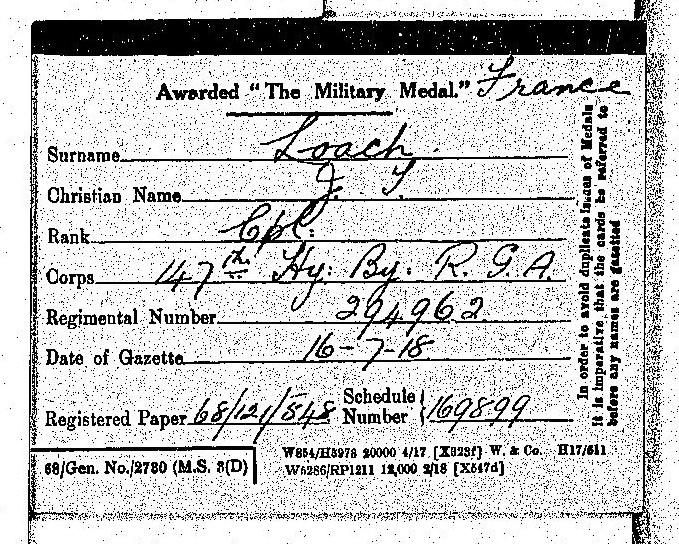 Awarded "The Military Medal." France
Surname Loach
Christian Name J. T.
Rank Cpl:
Corps 147th Hy: By: R. G. A.
Regimental Number 294962
Date of Gazette 16-7-18
Registered Paper 68/121/548 Schedule Number 169899
68/Gen. No./2780 (M.S. 3(D)
W854/H5978 20000 4/17 [X623f] W. & Co. H17/611
W5286/RP1211 12,000 2/18 [X547d]
In order to avoid duplicate issues of Medals
it is imperative that the cards be referred to
before any names are gazetted